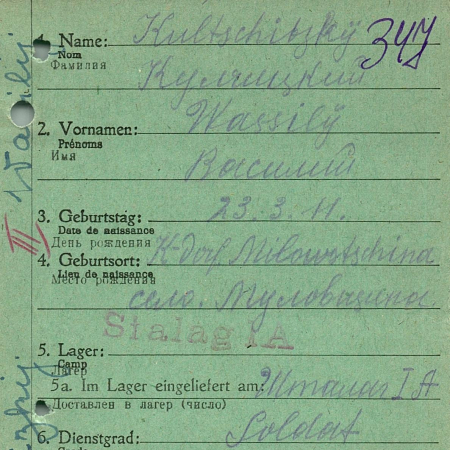 1. Name: Kultschitzkÿ 347
Nom
Фамилия Кулчицкий
2. Vornamen: Wassilÿ
Prénoms
Имя Василий
3. Geburtstag: 23. 3. 11.
Date de naissance
День рождения
4. Geburtsort: K-dorf Milowotschina
Lieu de naissance
Место рождения
село.
Stalag IA
5. Lager:
Camp
Лагерь
5a. Im Lager eingeliefert am: Шталаг I A
Доставлен в лагерь (число)
6. Dienstgrad: Soldat
III Wassilij